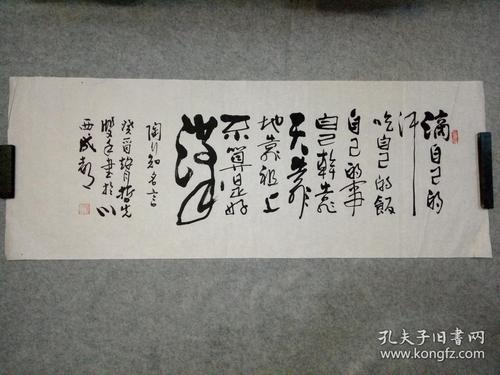 滴自己的
汗
吃自己的飯
自己的事
自己幹靠
天靠
地靠祖上
不算是好
漢
陶行知名言
癸酉 月哲先
書於川
西成都
孔夫子旧书网
www.kongfz.com